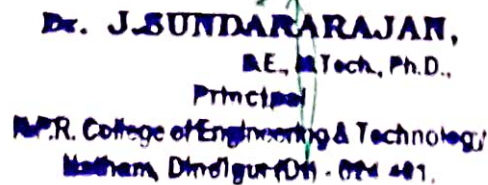 Dr. J.SUNDARARAJAN,
B.E., M.Tech., Ph.D.,
Principal
N.P.R. College of Engineering & Technology
Natham, Dindigul (Dt) - 624 401.